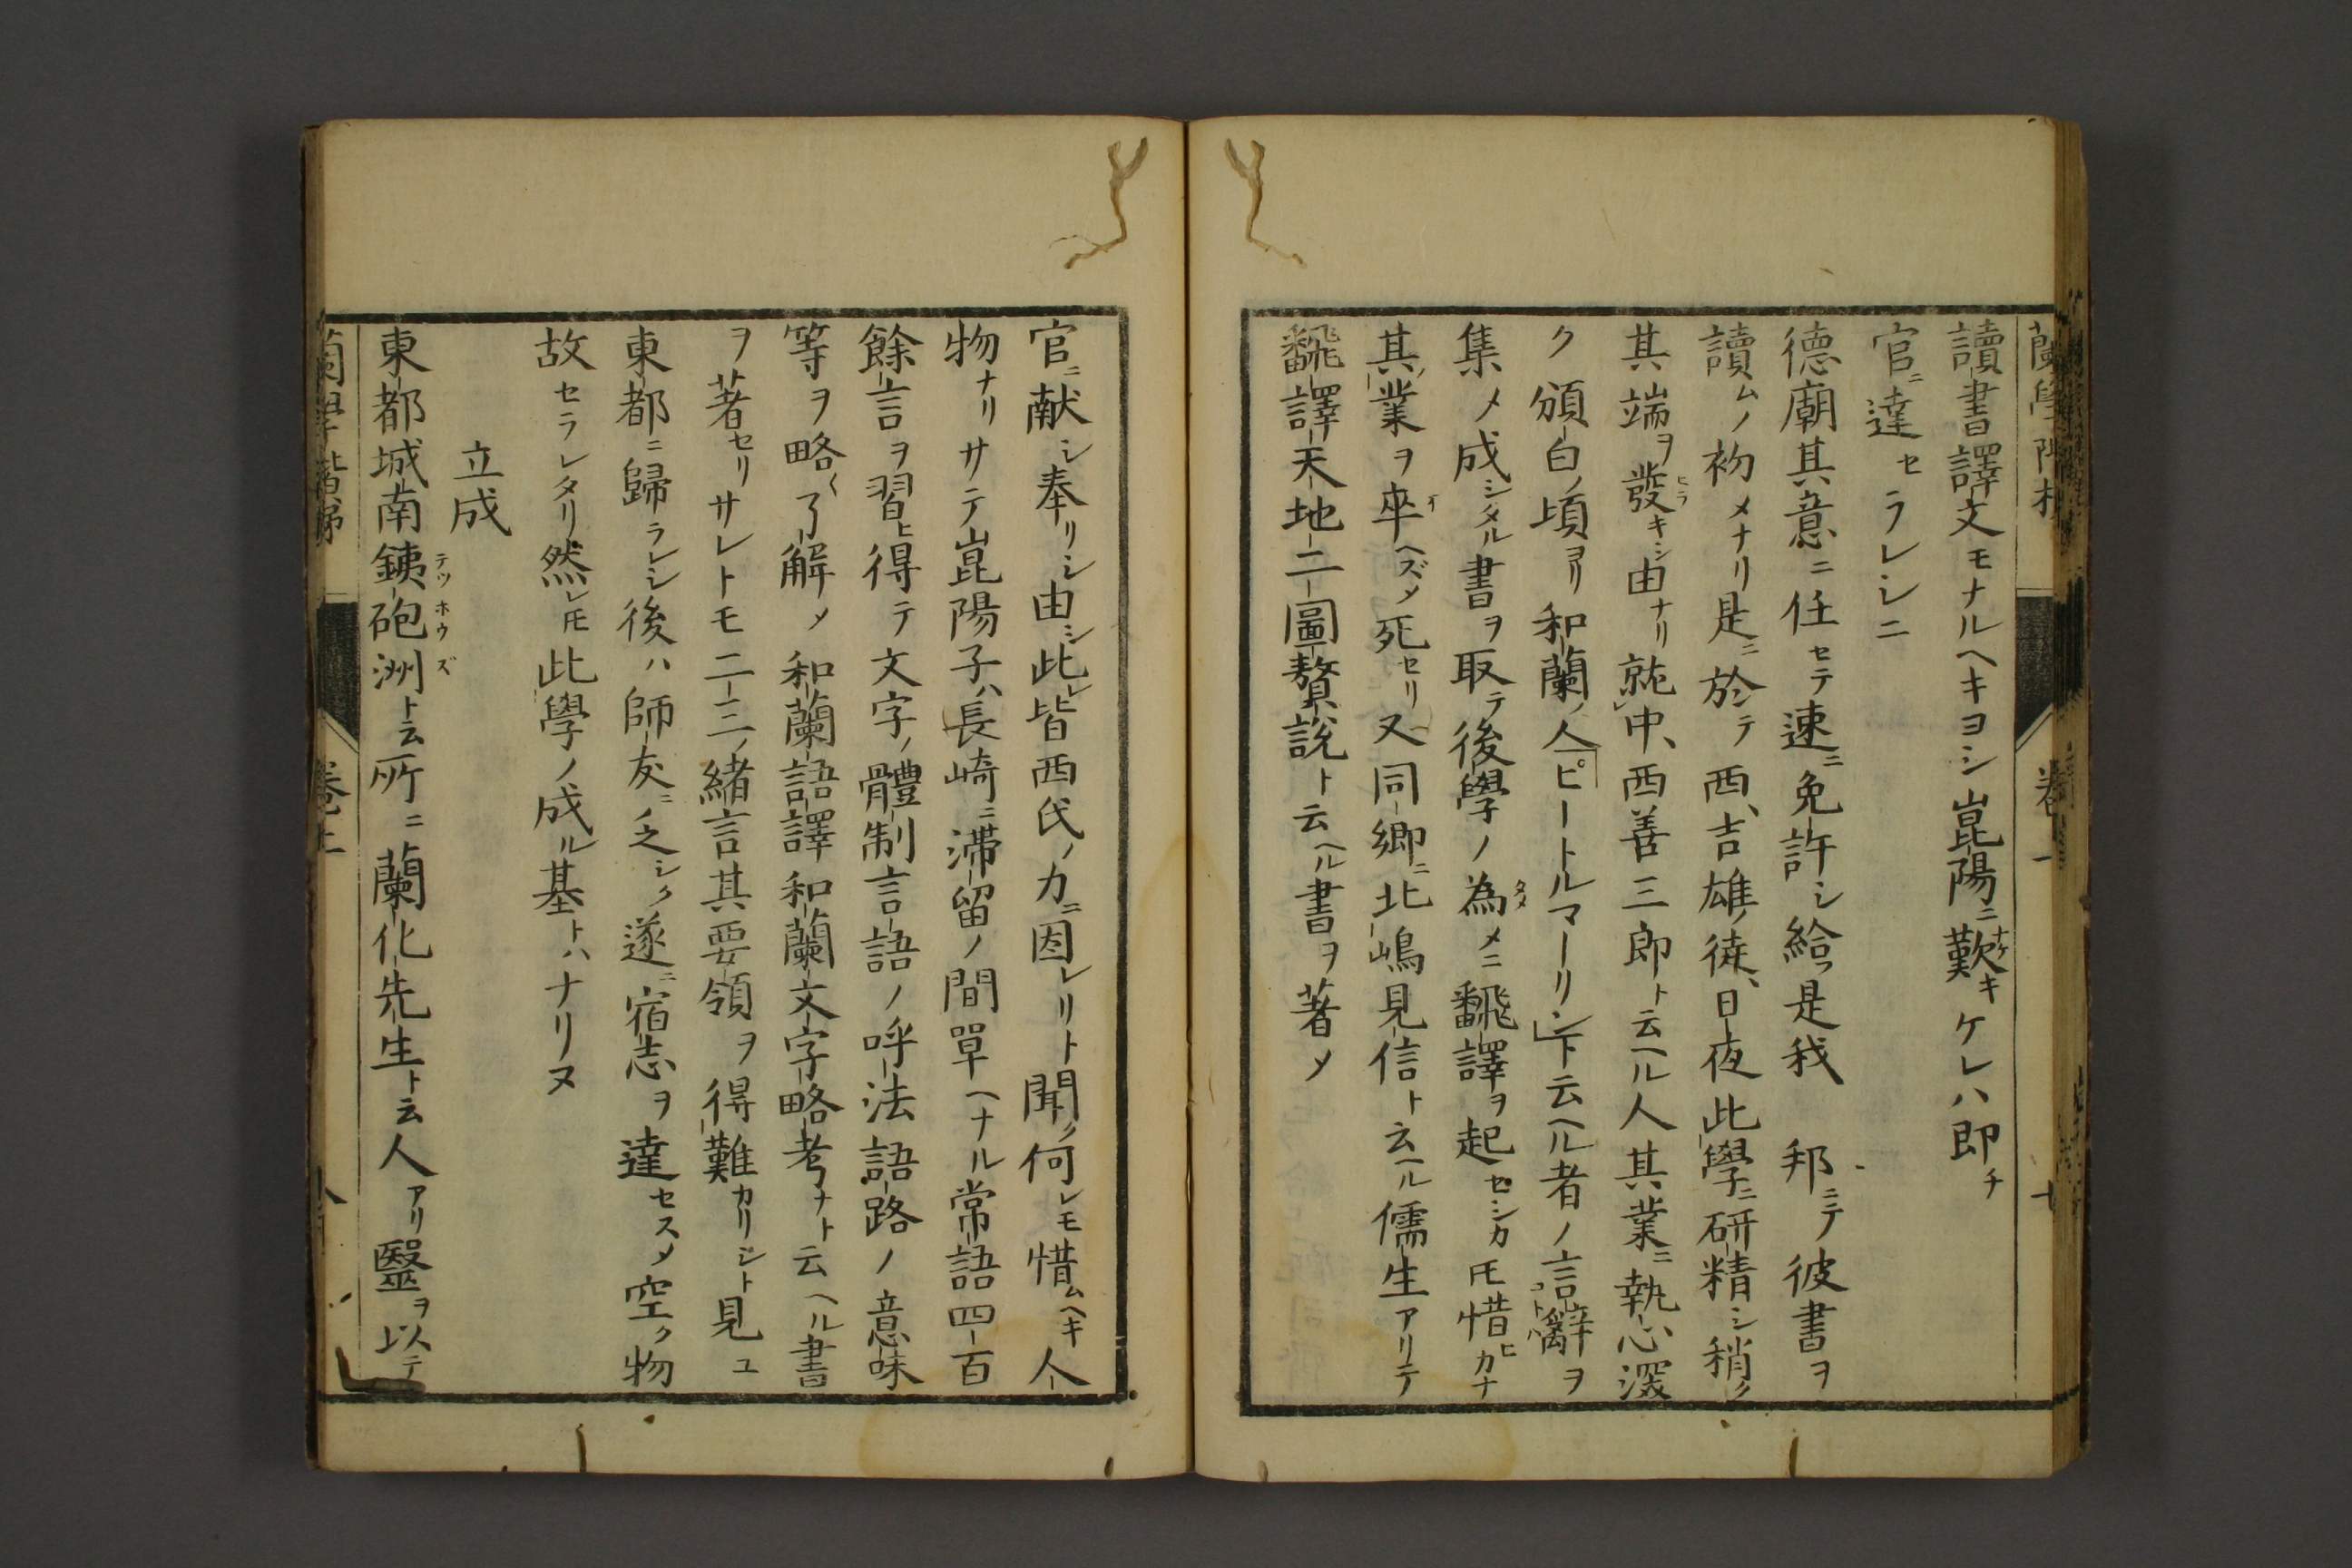 讀書譯文モナルヘキヨシ崑陽ニ歎キケレハ即チ
官ニ達セラレシニ
德廟其意ニ任セテ速ニ免許シ給フ是我 邦ニテ彼書ヲ
讀ムノ初メナリ是ニ於テ西、吉雄ノ徒、日夜此學ニ研精シ稍ク
其端ヲ發キシ由ナリ就中、西善三郎ト云ヘル人其業ニ執心深
ク頒白ノ頃ヨリ和蘭ノ人「ピートルマーリン」ト云ヘル者ノ言辭ヲ
集メ成シタル書ヲ取テ後學ノ為メニ飜譯ヲ起セシカ𪜈惜ヒカナ
其ノ業ヲ卒ヘズメ死セリ又同郷ニ北嶋見信ト云ヘル儒生アリテ
飜譯天地二圖贅說ト云ヘル書ヲ著メ
官ニ献シ奉リシ由シ此レ皆西氏ノ力ニ因レリト聞ク何レモ惜ムヘキ人
物ナリサテ崑陽子ハ長崎ニ滞留ノ間單ヘナル常語四百
餘言ヲ習ヒ得テ文字ノ體制言語ノ呼法語路ノ意味
等ヲ略く了解メ和蘭語譯和蘭文字略考ナト云ヘル書
ヲ著セリサレトモ二三ノ緒言其要領ヲ得難カリシト見ユ
東都ニ歸ラレシ後ハ師友ニ乏シク遂ニ宿志ヲ達セスメ空ク物
故セラレタリ然レ𪜈此學ノ成ル基トハナリヌ
立成
東都城南銕砲洲ト云所ニ蘭化先生ト云人アリ醫ヲ以テ
蘭學階梯 卷上